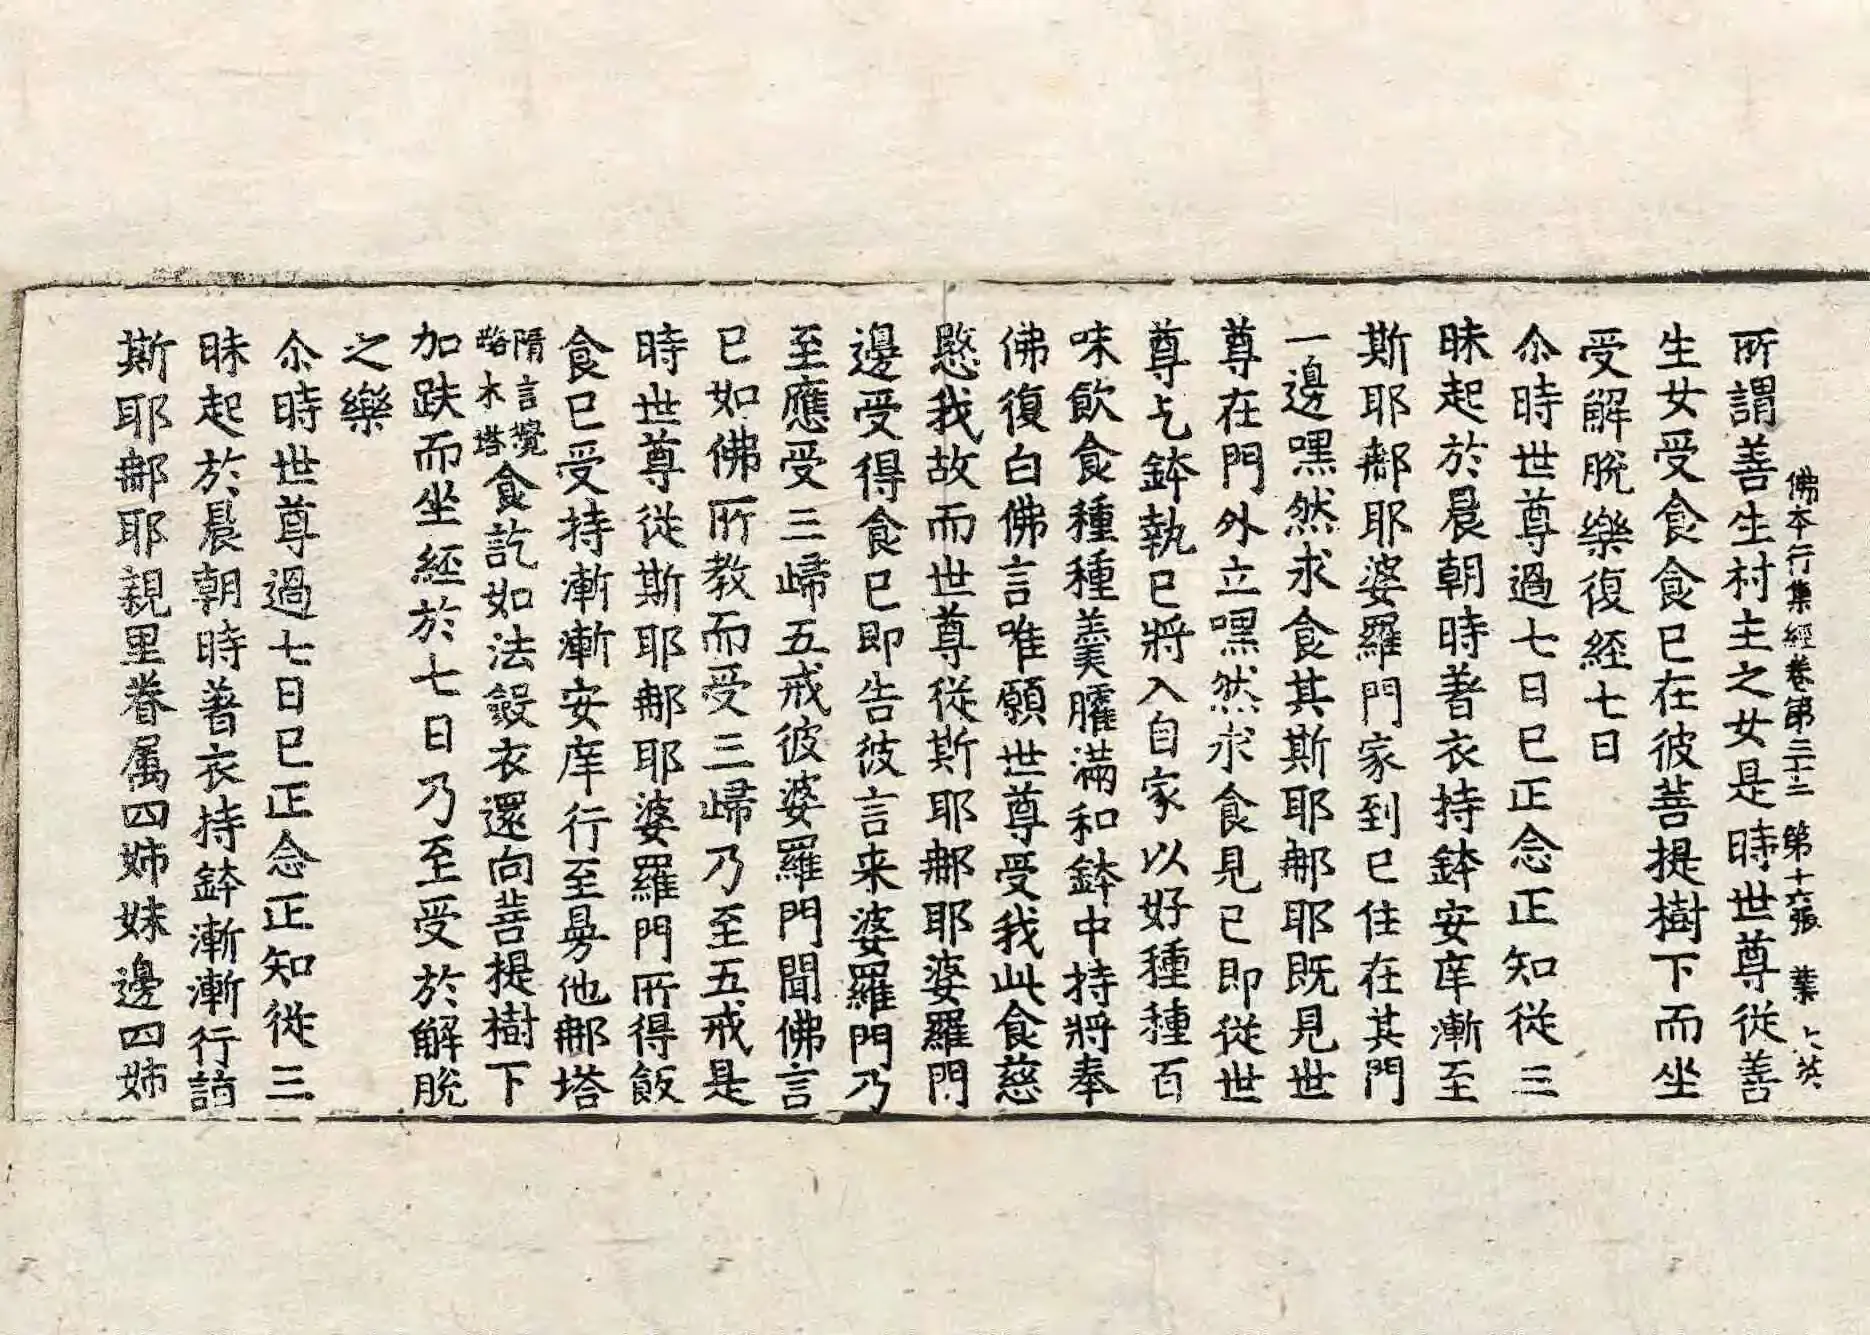 佛本行集經卷第三十二 第十六張 業
所謂善生村主之女是時世尊從善
生女受食食已在彼菩提樹下而坐
受解脫樂復經七日
尒時世尊過七日已正念正知從三
昧起於晨朝時著衣持鉢安庠漸至
斯耶鄁耶婆羅門家到已住在其門
一邊嘿然求食其斯耶鄁耶既見世
尊在門外立嘿然求食見已即從世
尊乞鉢執已將入自家以好種種百
味飲食種種羹臛滿和鉢中持將奉
佛復白佛言唯願世尊受我此食慈
愍我故而世尊從斯耶鄁耶婆羅門
邊受得食已即告彼言来婆羅門乃
至應受三歸五戒彼婆羅門聞佛言
已如佛所教而受三歸乃至五戒是
時世尊從斯耶鄁耶婆羅門所得飯
食已受持漸漸安庠行至㝵他鄁塔
隋言攪酪木塔食訖如法斂衣還向菩提樹下
加趺而坐經於七日乃至受於解脫
之樂
尒時世尊過七日已正念正知從三
昧起於晨朝時著衣持鉢漸漸行詣
斯耶鄁耶親里眷属四姊妹邊四姊